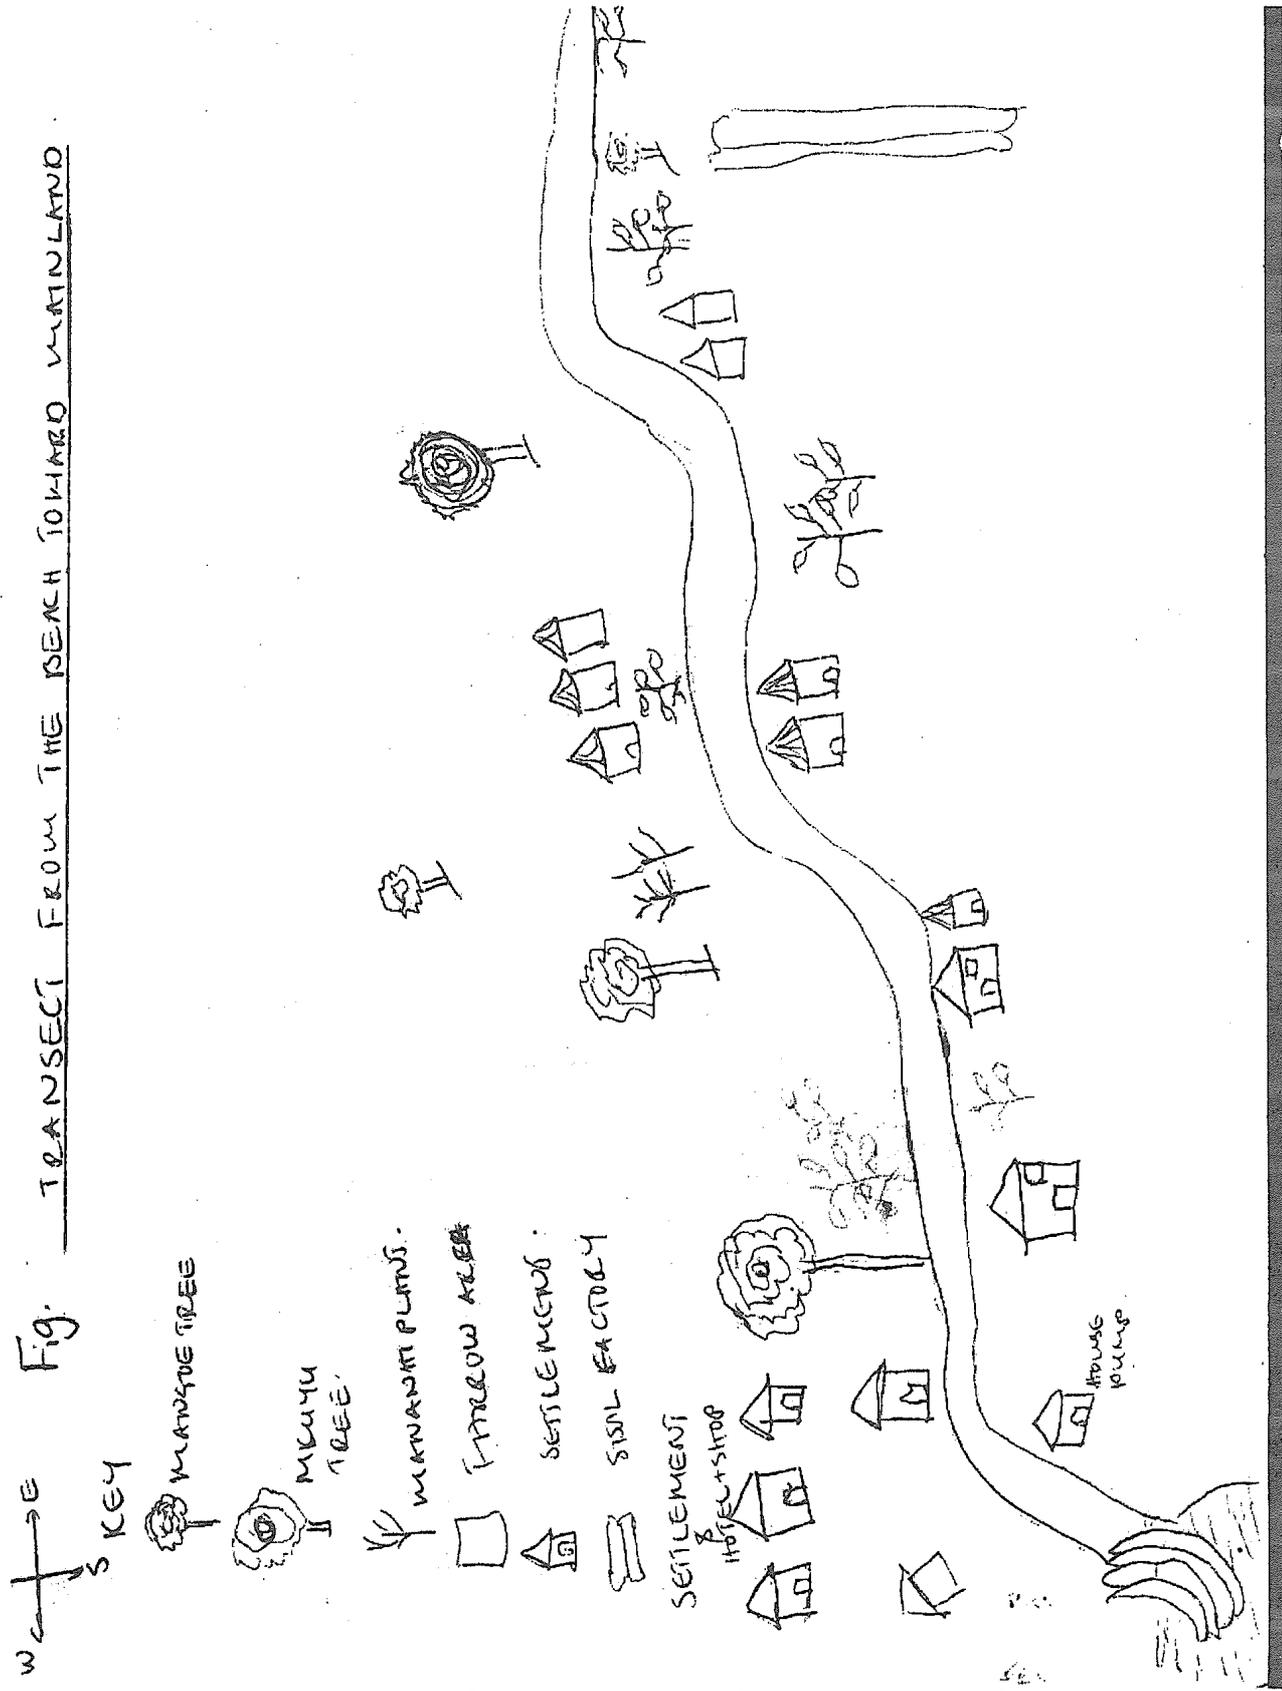 Fig. TRANSECT FROM THE BEACH TOWARD MAINLAND.
W E
S
KEY
MANGOE TREE
MKUYU
TREE.
MANANATI PLANT.
FARROW AREA
SETTLEMENT.
SISIL FACTORY
SETTLEMENT
&
HOTEL + SHOP
HOUSE
PUMP